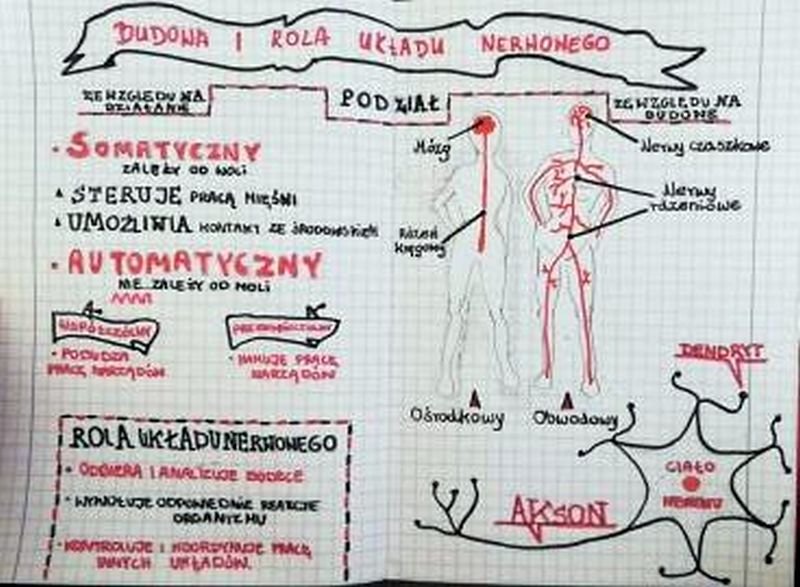 BUDOWA I ROLA UKŁADU NERWOWEGO
PODZIAŁ
ZE WZGLĘDU NA
DZIAŁANIE
• SOMATYCZNY
ZALEŻY OD WOLI
STERUJE PRACĄ MIĘŚNI
UMOŻLIWIA KONTAKT ZE ŚRODOWISKIEM
• AUTOMATYCZNY
NIE ZALEŻY OD WOLI
WSPÓŁCZULNY
• POBUDZA
PRACĘ NARZĄDÓW
PRZYWSPÓŁCZULNY
• HAMUJE PRACĘ
NARZĄDÓW
ROLA UKŁADU NERWOWEGO
• ODBIERA I ANALIZUJE BODŹCE
• WYWOŁUJE ODPOWIEDNIE REAKCJE
ORGANIZMU
• KONTROLUJE I KOORDYNUJE PRACĘ
INNYCH UKŁADÓW
ZE WZGLĘDU NA
BUDOWĘ
Mózg
Rdzeń
kręgowy
Nerwy czaszkowe
Nerwy
rdzeniowe
Ośrodkowy
Obwodowy
DENDRYT
CIAŁO
NEURONU
AKSON